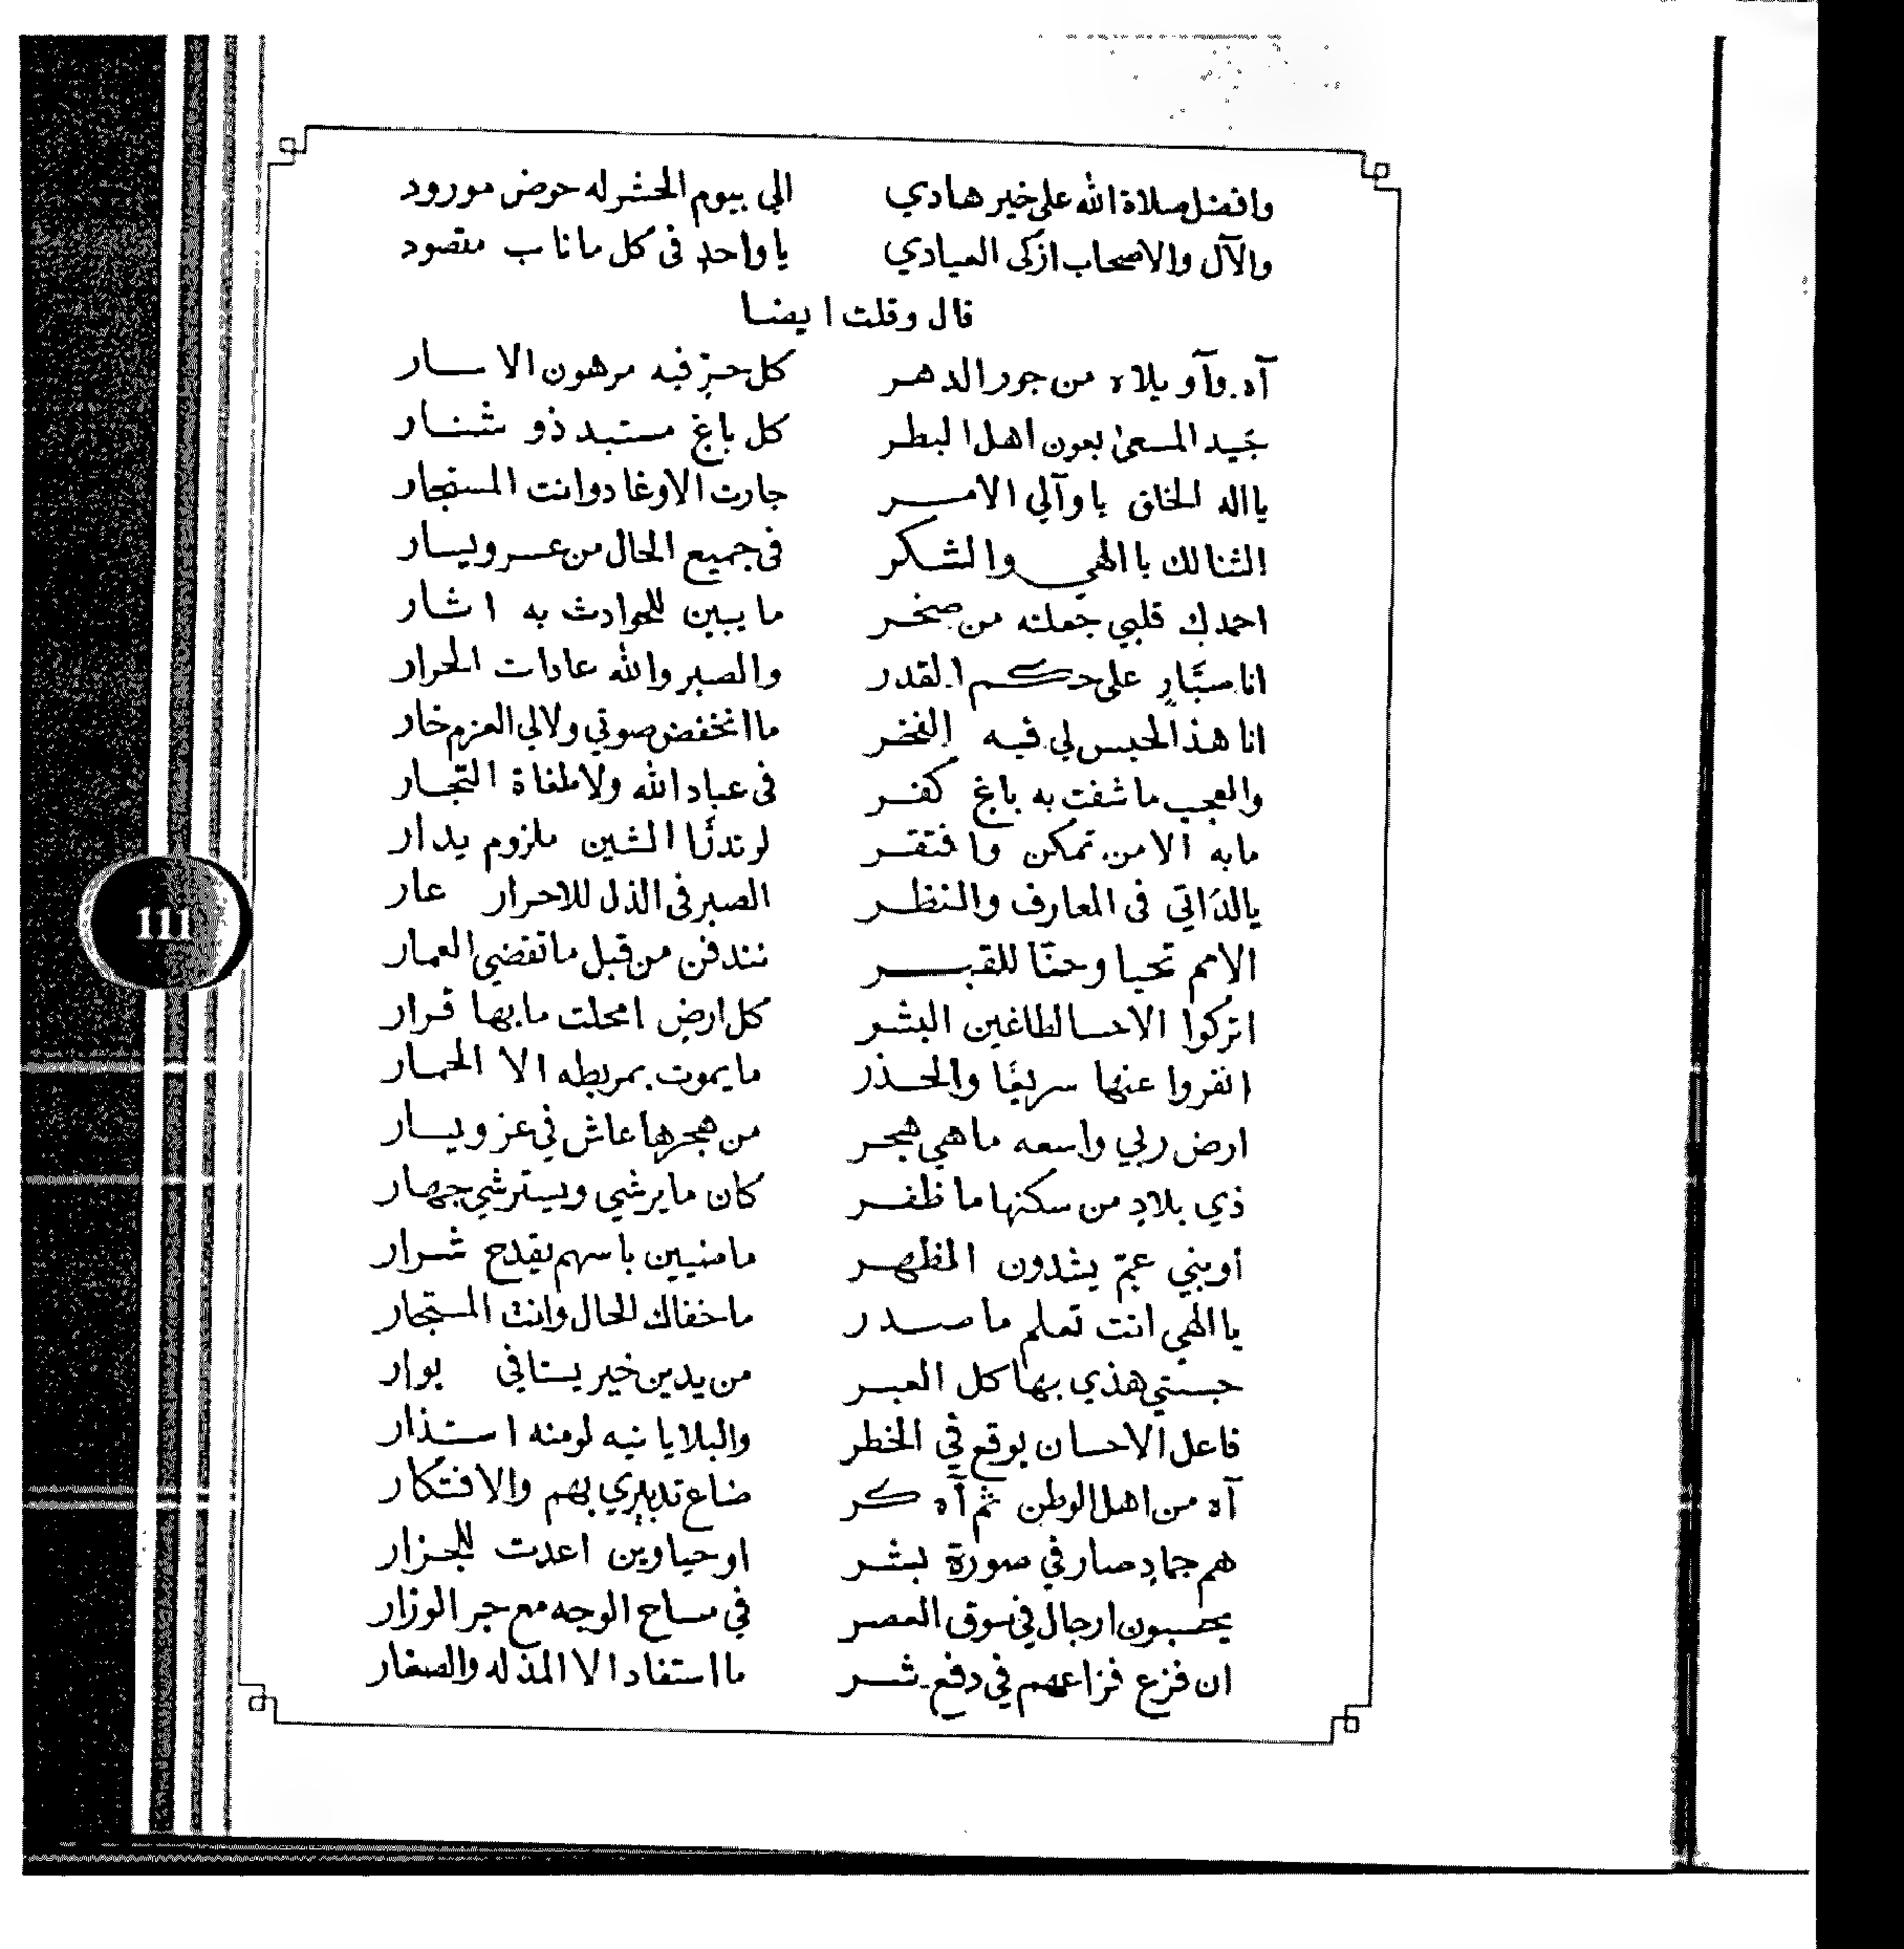 وافضل صلاة الله على خير هادي الي بيوم الحشر له حوض مورود
والآل والاصحاب ازكى العبادي ياواحدٍ فى كل ماناب مقصود
قال وقلت ايضا
آه وآويلاه من جور الدهر كل حرٍ فيه مرهون الاسار
جَيد المسعىٰ بعون اهل البطر كل باغٍ مستبد ذو شنار
يااله الخلق ياوآلي الامر جارت الاوغادوانت المستجار
الثنالك ياالهي والشكر فى جميع الحال من عسر ويسار
احمدك قلبي جعلته من صخر مايبين للحوادث به اثار
اناصبَّارٍ على حكم القدر والصبر والله عادات الحرار
انا هذالحبس لي فيه الفخر ماانخفض صوتي ولالي العزم خار
والعجب ماشفت به باغٍ كفر فى عباد الله ولاطغاة التجار
مابه الا من تمكن وافتقر لو الشين ملزوم يدار
يالذاتي فى المعارف والنظر الصبر فى الذل للاحرار عار
الامم تحيا وحنّا للقبر نندفن من قبل ماتقضي العمار
اتركوا الاحسا لطاغين البشر كل ارضٍ امحلت مابها قرار
انفروا عنها سريعًا والحذر مايموت بمربطه الا الحمار
ارض ربي واسعه ماهي هجر من هجرها عاش في عز ويسار
ذي بلادٍ من سكنها ماظفر كان مايرشي ويسترشي جهار
أوبني عمّ يشدون الظهر مامنيين باسهم يقدح شرار
ياالهي انت تعلم ماصدر ماخفاك للحال وانت المستجار
حبستي هذي بها كل العبر من يدين خير يستافي بوار
فاعل الاحسان يوقع في الخطر والبلايا نيه لومنه استذار
آه من اهل الوطن ثم آه كر ضاع تدبيري بهم والافتكار
هم جمادٍ صار في صورة بشر اوحياوين اعدت للجزار
يحسبون ارجال في سوق العصر في مساح الوجه مع جر الوزار
ان فزع فزاعهم في دفع شر مااستفاد الا المذله والصغار
111